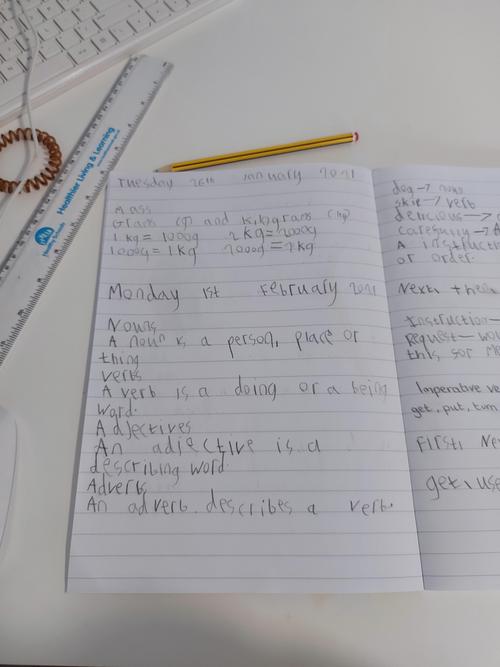 Healthier Living & Learning
Tuesday 26th January 2021
Mass
Grams (g) and Kilograms (kg)
1 kg = 1000g 2 kg = 2000g
1000g = 1 kg 2000g = 2 kg
Monday 1st February 2021
Nouns
A noun is a person, place or
thing
verbs
A verb is a doing or a being
word.
Adjectives
An adjective is a
describing word.
Adverbs
An adverb describes a verb.
dog → noun
skie → verb
delicious →
carefully →
A instruct
or order.
Next, the
Instruction-
Request- wou
this for me
Imperative ve
get, put, turn
First, Ne
get, use